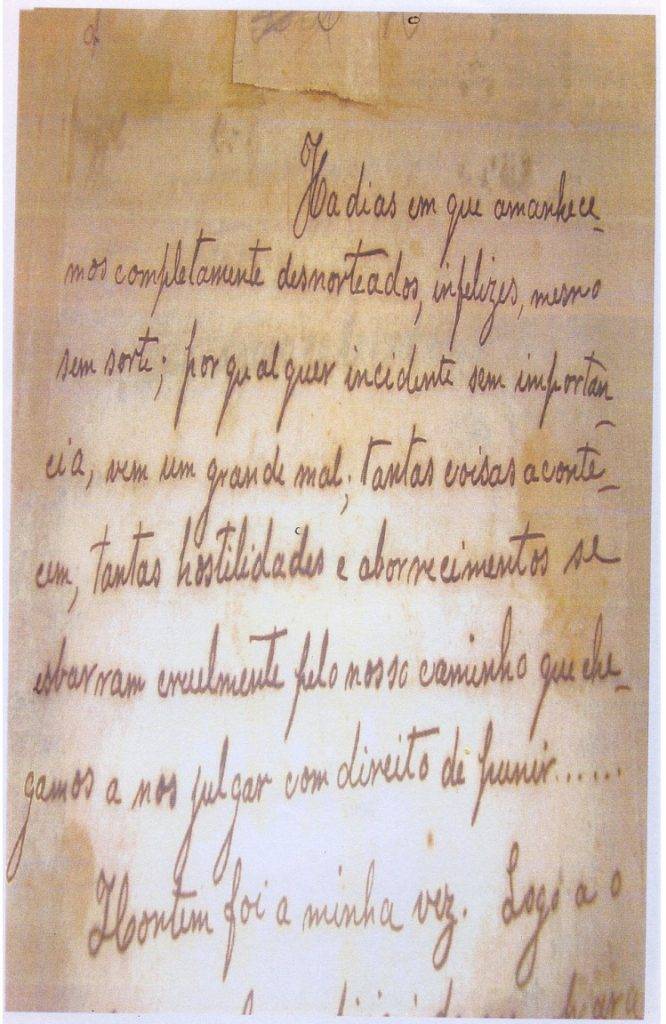 Ha dias em que amanhece_
mos completamente desnorteados, infelizes, mesmo
sem sorte; por qualquer incidente sem importan_
cia, vem um grande mal; tantas coisas aconte_
cem, tantas hostilidades e aborrecimentos se
esbarram cruelmente pelo nosso caminho que che_
gamos a nos julgar com direito de punir......
Hontem foi a minha vez. Logo a o